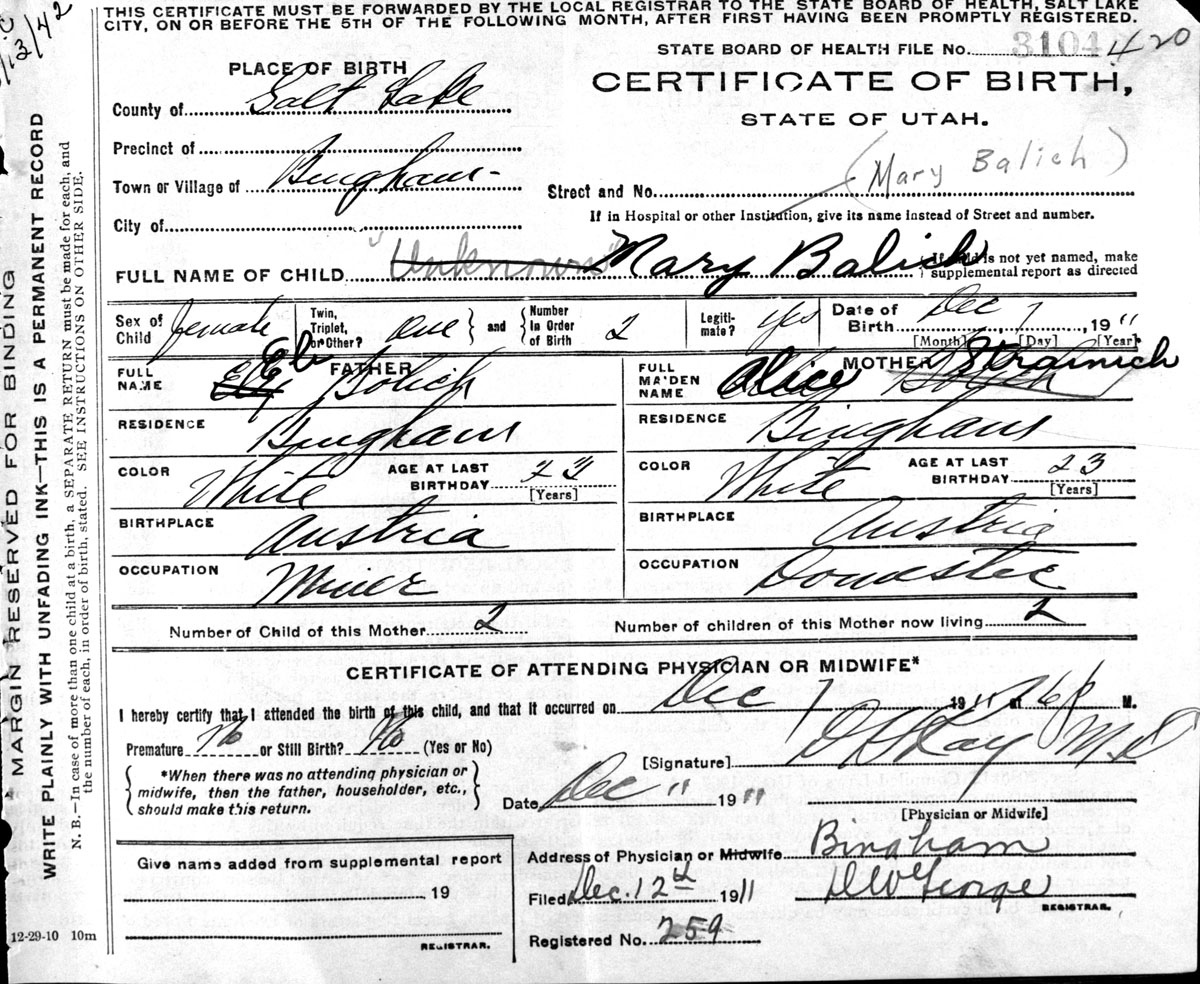 THIS CERTIFICATE MUST BE FORWARDED BY THE LOCAL REGISTRAR TO THE STATE BOARD OF HEALTH, SALT LAKE
CITY, ON OR BEFORE THE 5TH OF THE FOLLOWING MONTH, AFTER FIRST HAVING BEEN PROMPTLY REGISTERED.
/13/42
STATE BOARD OF HEALTH FILE No. 3104 420
PLACE OF BIRTH
CERTIFICATE OF BIRTH,
STATE OF UTAH.
County of Salt Lake
Precinct of
Town or Village of Bingham
(Mary Balich)
Street and No.
If in Hospital or other Institution, give its name instead of Street and number.
City of
FULL NAME OF CHILD "Unknown" Mary Balich
{If child is not yet named, make
supplemental report as directed
Sex of Child female
Twin, Triplet, or Other? one } and { Number In Order of Birth 2
Legiti-mate? yes
Date of Birth Dec 7, 1911
[Month] [Day] [Year]
FATHER
FULL NAME Eli Bolich
RESIDENCE Bingham
COLOR White AGE AT LAST BIRTHDAY
[Years]
BIRTHPLACE Austria
OCCUPATION Miner
MOTHER
FULL MAIDEN NAME Alice Strainich
RESIDENCE Bingham
COLOR White AGE AT LAST BIRTHDAY 23
[Years]
BIRTHPLACE Austria
OCCUPATION Domestic
Number of Child of this Mother 2
Number of children of this Mother now living 2
CERTIFICATE OF ATTENDING PHYSICIAN OR MIDWIFE*
I hereby certify that I attended the birth of this child, and that it occurred on Dec 7 1911 at 6 P M.
Premature No or Still Birth? No (Yes or No)
[Signature] Ray MD
{*When there was no attending physician or
midwife, then the father, householder, etc.,
should make this return.}
Date Dec " 19 "
[Physician or Midwife]
Give name added from supplemental report
19
REGISTRAR.
Address of Physician or Midwife Bingham
Filed Dec. 12th 1911 George
REGISTRAR.
Registered No. 259
12-29-10 10m
MARGIN RESERVED FOR BINDING
WRITE PLAINLY WITH UNFADING INK—THIS IS A PERMANENT RECORD
N. B.—In case of more than one child at a birth, a SEPARATE RETURN must be made for each, and
the number of each, in order of birth, stated. SEE INSTRUCTIONS ON OTHER SIDE.